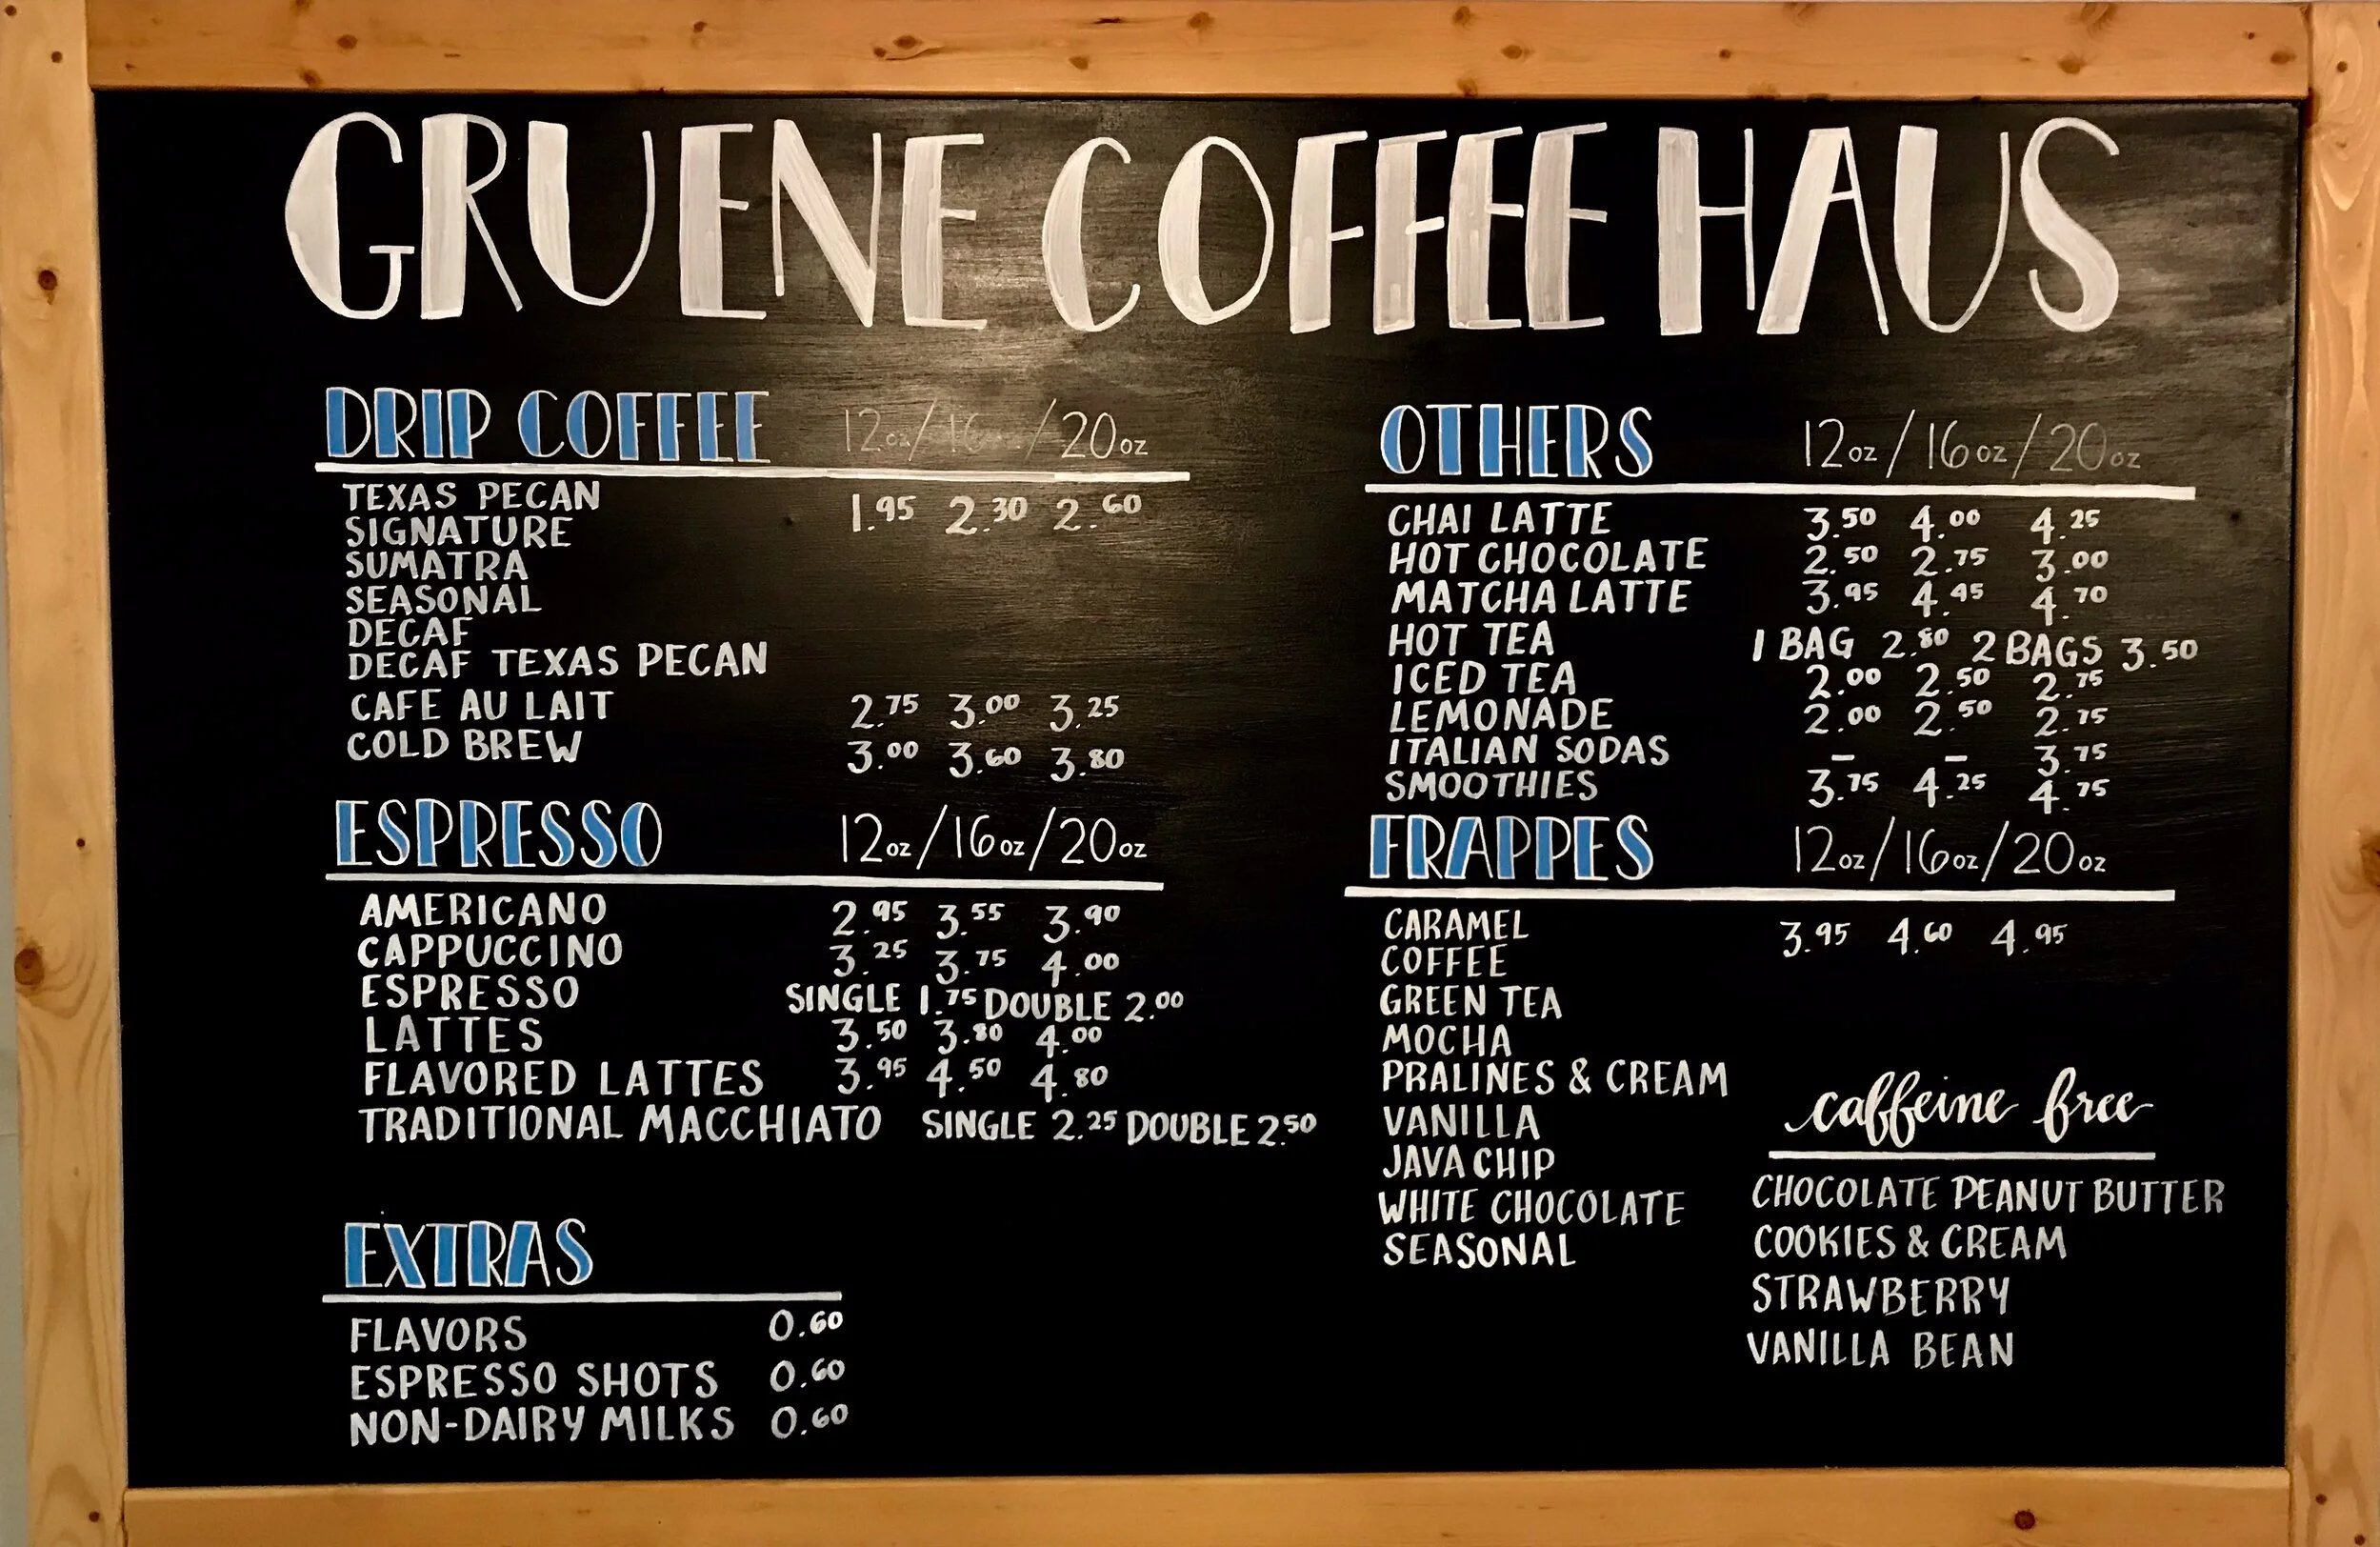 GRUENE COFFEE HAUS
DRIP COFFEE 12oz/16 /20oz
TEXAS PECAN 1.95 2.30 2.60
SIGNATURE
SUMATRA
SEASONAL
DECAF
DECAF TEXAS PECAN
CAFE AU LAIT 2.75 3.00 3.25
COLD BREW 3.00 3.60 3.80
ESPRESSO 12oz/16oz/20oz
AMERICANO 2.95 3.55 3.90
CAPPUCCINO 3.25 3.75 4.00
ESPRESSO SINGLE 1.75 DOUBLE 2.00
LATTES 3.50 3.80 4.00
FLAVORED LATTES 3.95 4.50 4.80
TRADITIONAL MACCHIATO SINGLE 2.25 DOUBLE 2.50
EXTRAS
FLAVORS 0.60
ESPRESSO SHOTS 0.60
NON-DAIRY MILKS 0.60
OTHERS 12oz/16oz/20oz
CHAI LATTE 3.50 4.00 4.25
HOT CHOCOLATE 2.50 2.75 3.00
MATCHA LATTE 3.95 4.45 4.70
HOT TEA 1 BAG 2.80 2 BAGS 3.50
ICED TEA 2.00 2.50 2.75
LEMONADE 2.00 2.50 2.75
ITALIAN SODAS - - 3.75
SMOOTHIES 3.75 4.25 4.75
FRAPPES 12oz/16oz/20oz
CARAMEL 3.95 4.60 4.95
COFFEE
GREEN TEA
MOCHA
PRALINES & CREAM
VANILLA
JAVA CHIP
WHITE CHOCOLATE
SEASONAL
caffeine free
CHOCOLATE PEANUT BUTTER
COOKIES & CREAM
STRAWBERRY
VANILLA BEAN